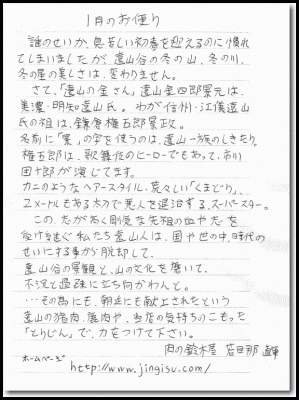 1月のお便り
誰のせいか、息苦しい初春を迎えるのに慣れ
てしまいましたが、遠山谷の冬の山、冬の川、
冬の星の美しさは、変わりません。
さて、「遠山の金さん」遠山金四郎景元は、
美濃・明知遠山氏。わが信州・江儀遠山
氏の祖は、鎌倉権五郎景政。
名前に「景」の字を使うのは、遠山一族のしきたり。
権五郎は、歌舞伎のヒーローでもあって、市川
団十郎が演じてます。
カニのようなヘアースタイル、荒々しい「くまどり」、
2メートルもある太刀で悪人を退治する、スーパースター。
この、たがわぬ剛勇な先祖の血や志を
受け継ぐ私たち遠山人は、国や世の中、時代の
せいにする事から脱却して、
遠山谷の景観と、山の文化を磨いて、
不況と過疎に立ち向かわんと。
…その為にも、朝廷にも献上されたという
遠山の猪肉、鹿肉や、当店の気持ちのこもった
「とりじん」で、力をつけて下さい。
肉の鈴木屋 若旦那
ホームページ
http://www.jingisu.com/